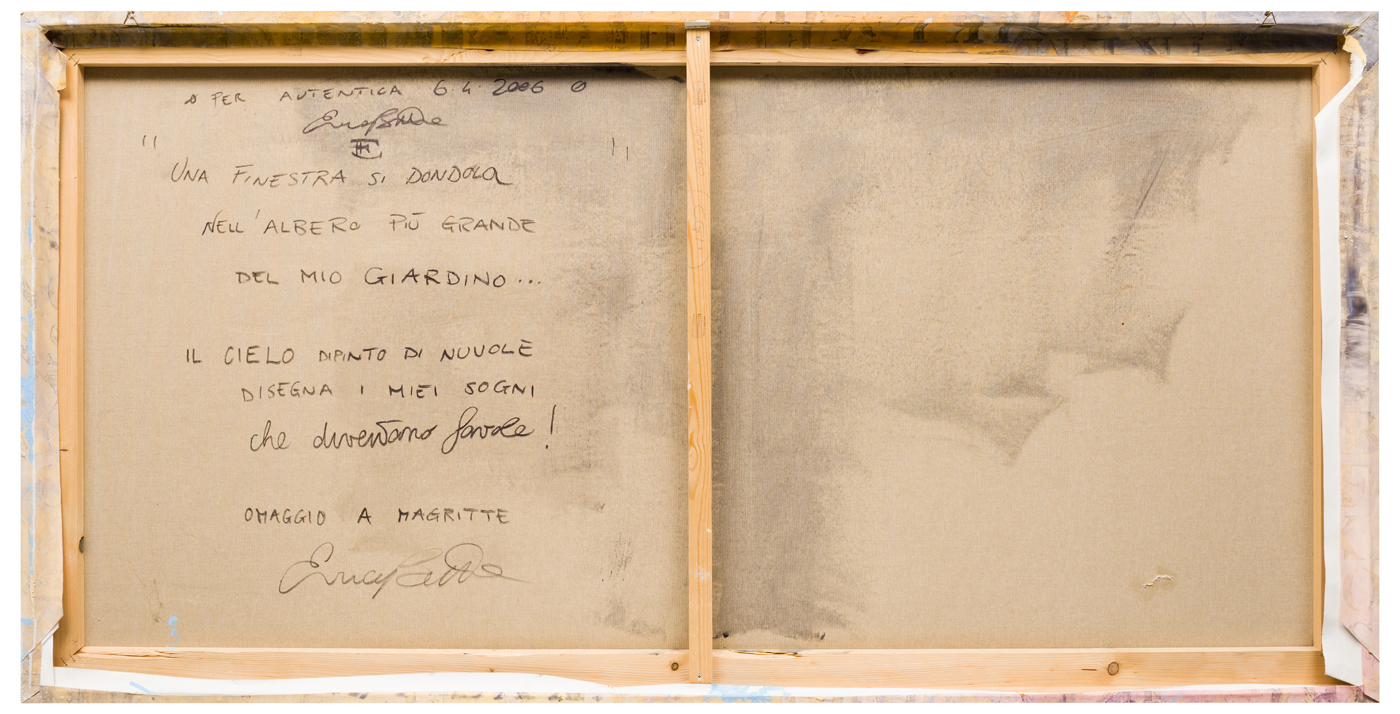 PER AUTENTICA 6.4.2006
"UNA FINESTRA SI DONDOLA
NELL'ALBERO PIÙ GRANDE
DEL MIO GIARDINO...
IL CIELO DIPINTO DI NUVOLE
DISEGNA I MIEI SOGNI
che diventano favole!
OMAGGIO A MAGRITTE